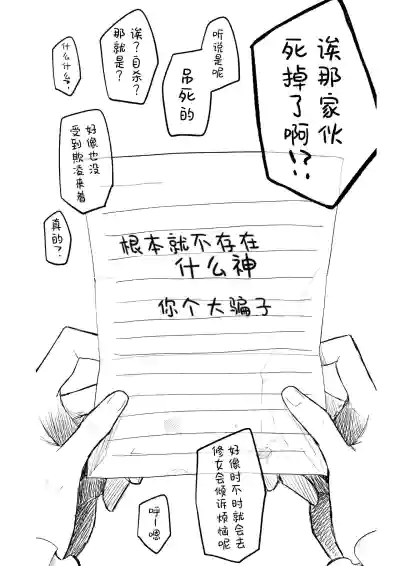 诶那家伙
死掉了啊!?
听说是呢
吊死的
诶?自杀?
那就是?
什么什么?
好像也没
受到欺凌来着
真的?
根本就不存在
什么神
你个大骗子
好像时不时就会去
修女会倾诉烦恼呢
呼ー嗯